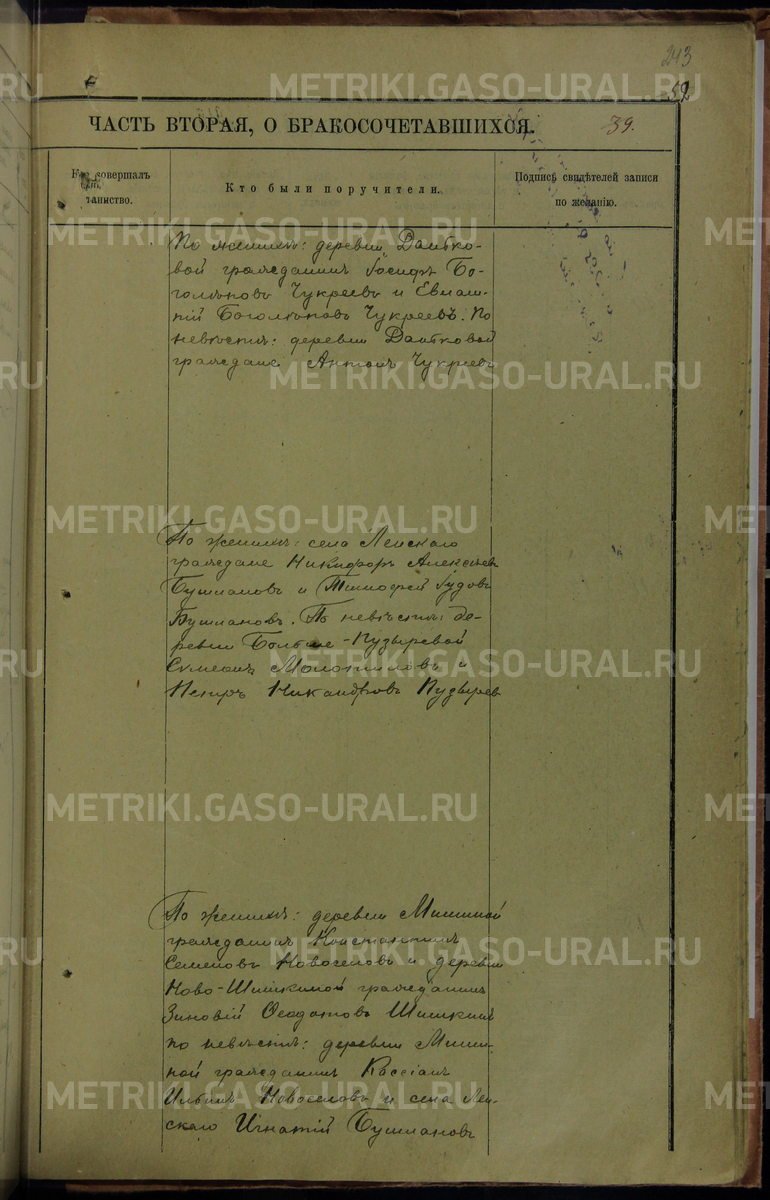 243
52
METRIKI.GASO-URAL.RU
ЧАСТЬ ВТОРАЯ, О БРАКОСОЧЕТАВШИХСЯ.
39.
совершалъ
таинство.
Кто были поручители.
Подпись свидѣтелей записи
по желанію.
По женихѣ: деревни Даибко-
вой гражданинъ Іосифъ Бо-
голѣповъ Чукреевъ и Евлам-
пій Боголѣповъ Чукреевъ. По
невѣстѣ: деревни Даибковой
граждане Антонъ Чукреевъ
По женихѣ: села Ленскаго
граждане Никифоръ Алексѣевъ
Бушлановъ и Тимоѳей Іудовъ
Бушлановъ. По невѣстѣ: де-
ревни Больше-Пузыревой
Симеонъ Молотиловъ и
Петръ Никандровъ Пузыревъ
По женихѣ: деревни Мишиной
гражданинъ Константинъ
Семеновъ Новоселовъ и деревни
Ново-Шишкиной гражданинъ
Зиновій Ѳедотовъ Шишкинъ
по невѣстѣ: деревни Миши-
ной гражданинъ Кассіанъ
Ильинъ Новоселовъ и села Лен-
скаго Игнатій Бушлановъ